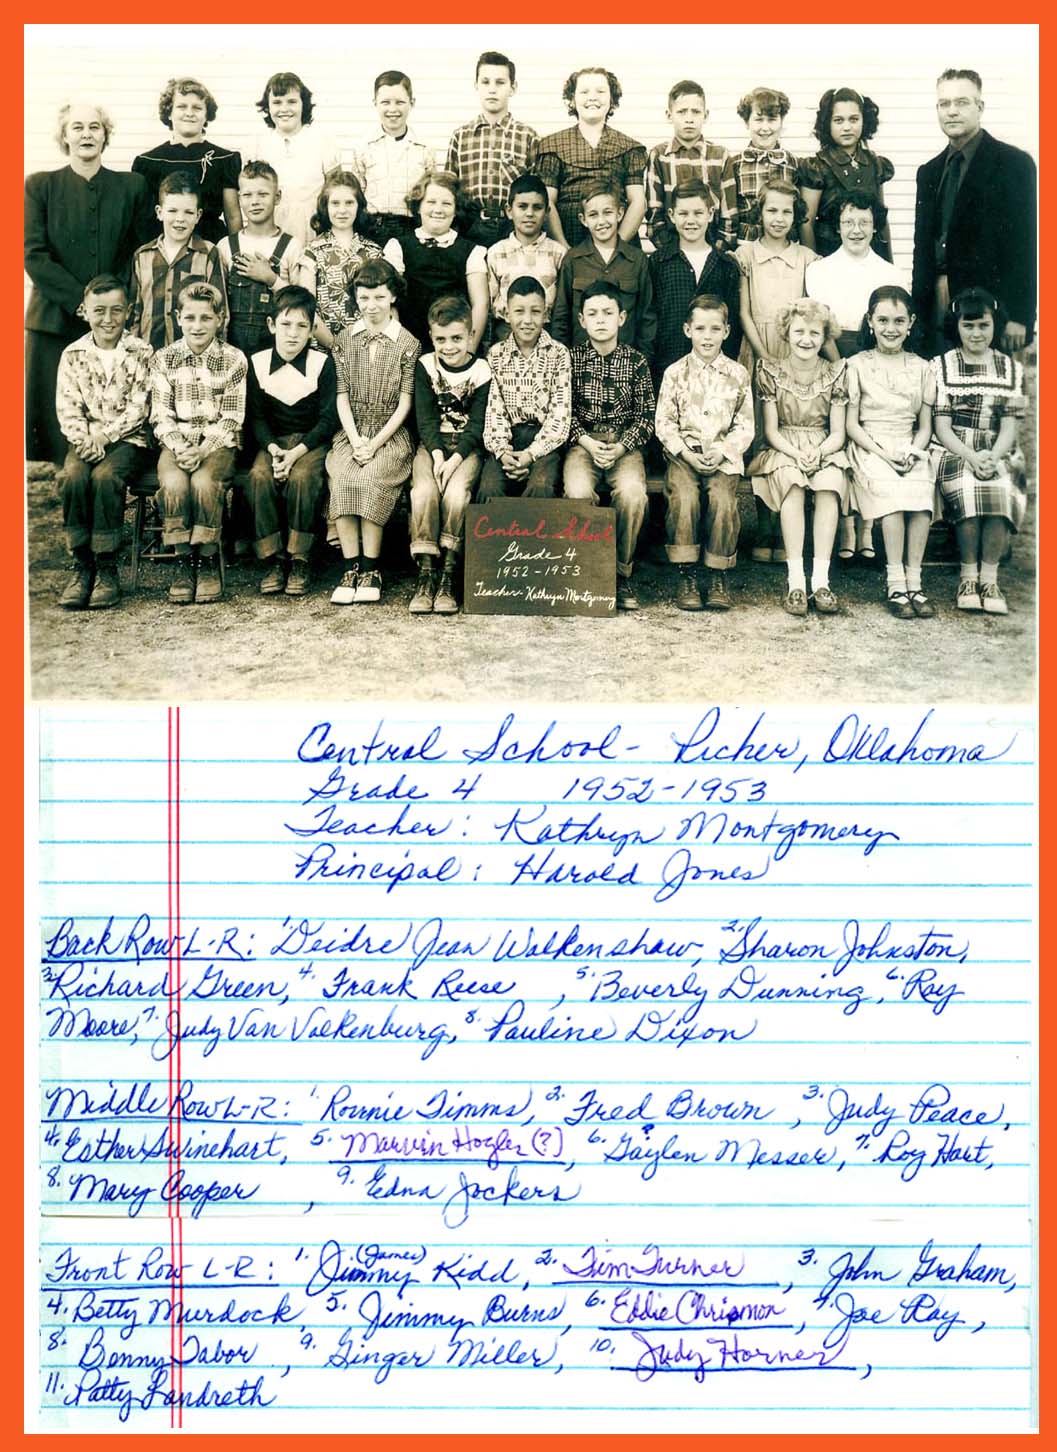 Central School
Grade 4
1952-1953
Teacher- Kathryn Montgomery
Central School- Picher, Oklahoma
Grade 4 1952-1953
Teacher: Kathryn Montgomery
Principal: Harold Jones
Back Row L-R: 1. Deidre Jean Walkenshaw, 2. Sharon Johnston,
3. Richard Green, 4. Frank Reese, 5. Beverly Dunning, 6. Ray
Moore, 7. Judy Van Valkenburg, 8. Pauline Dixon
Middle Row L-R: 1. Ronnie Timms, 2. Fred Brown, 3. Judy Peace,
4. Esther Swinehart, 5. Marvin Hogler (?), 6. Gaylen Messer, 7. Roy Hart,
8. Mary Cooper, 9. Edna Jockers
Front Row L-R: 1. Jimmy (James) Kidd, 2. Tim Turner, 3. John Graham,
4. Betty Murdock, 5. Jimmy Burns, 6. Eddie Chrismon, 7. Joe Ray,
8. Benny Tabor, 9. Ginger Miller, 10. Judy Horner,
11. Patty Landreth